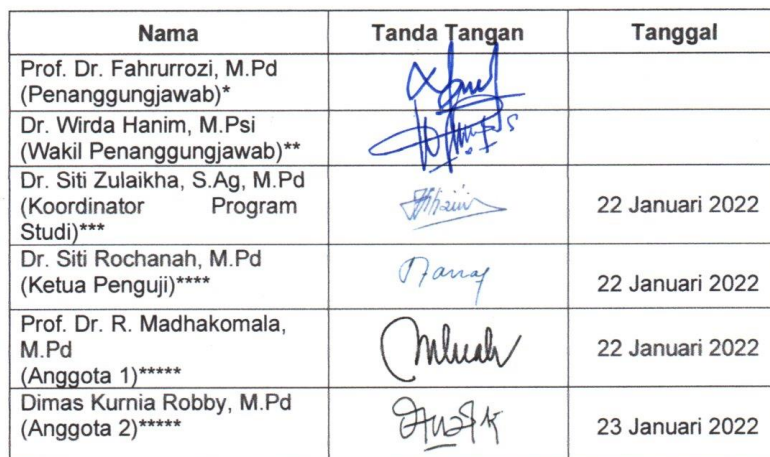 Nama Tanda Tangan Tanggal
Prof. Dr. Fahrurrozi, M.Pd
(Penanggungjawab)*
Dr. Wirda Hanim, M.Psi
(Wakil Penanggungjawab)**
Dr. Siti Zulaikha, S.Ag, M.Pd
(Koordinator Program
Studi)***
22 Januari 2022
Dr. Siti Rochanah, M.Pd
(Ketua Penguji)****
22 Januari 2022
Prof. Dr. R. Madhakomala,
M.Pd
(Anggota 1)*****
22 Januari 2022
Dimas Kurnia Robby, M.Pd
(Anggota 2)*****
23 Januari 2022